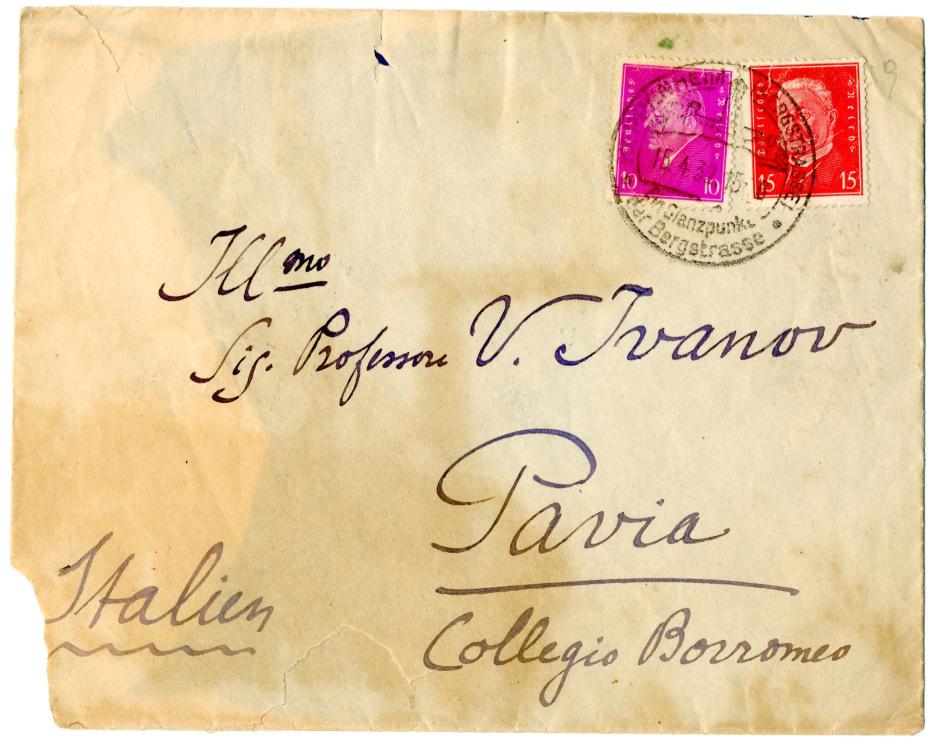 Deutsches Reich
10 10
Deutsches Reich
15 15
Glanzpunkt
der Bergstrasse
Ill mo
Sig. Professore V. Ivanov
Pavia
Collegio Borromeo
Italien